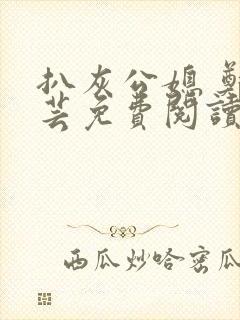 扒灰公媳 鄭
芸免費閱讀
西瓜炒哈密瓜